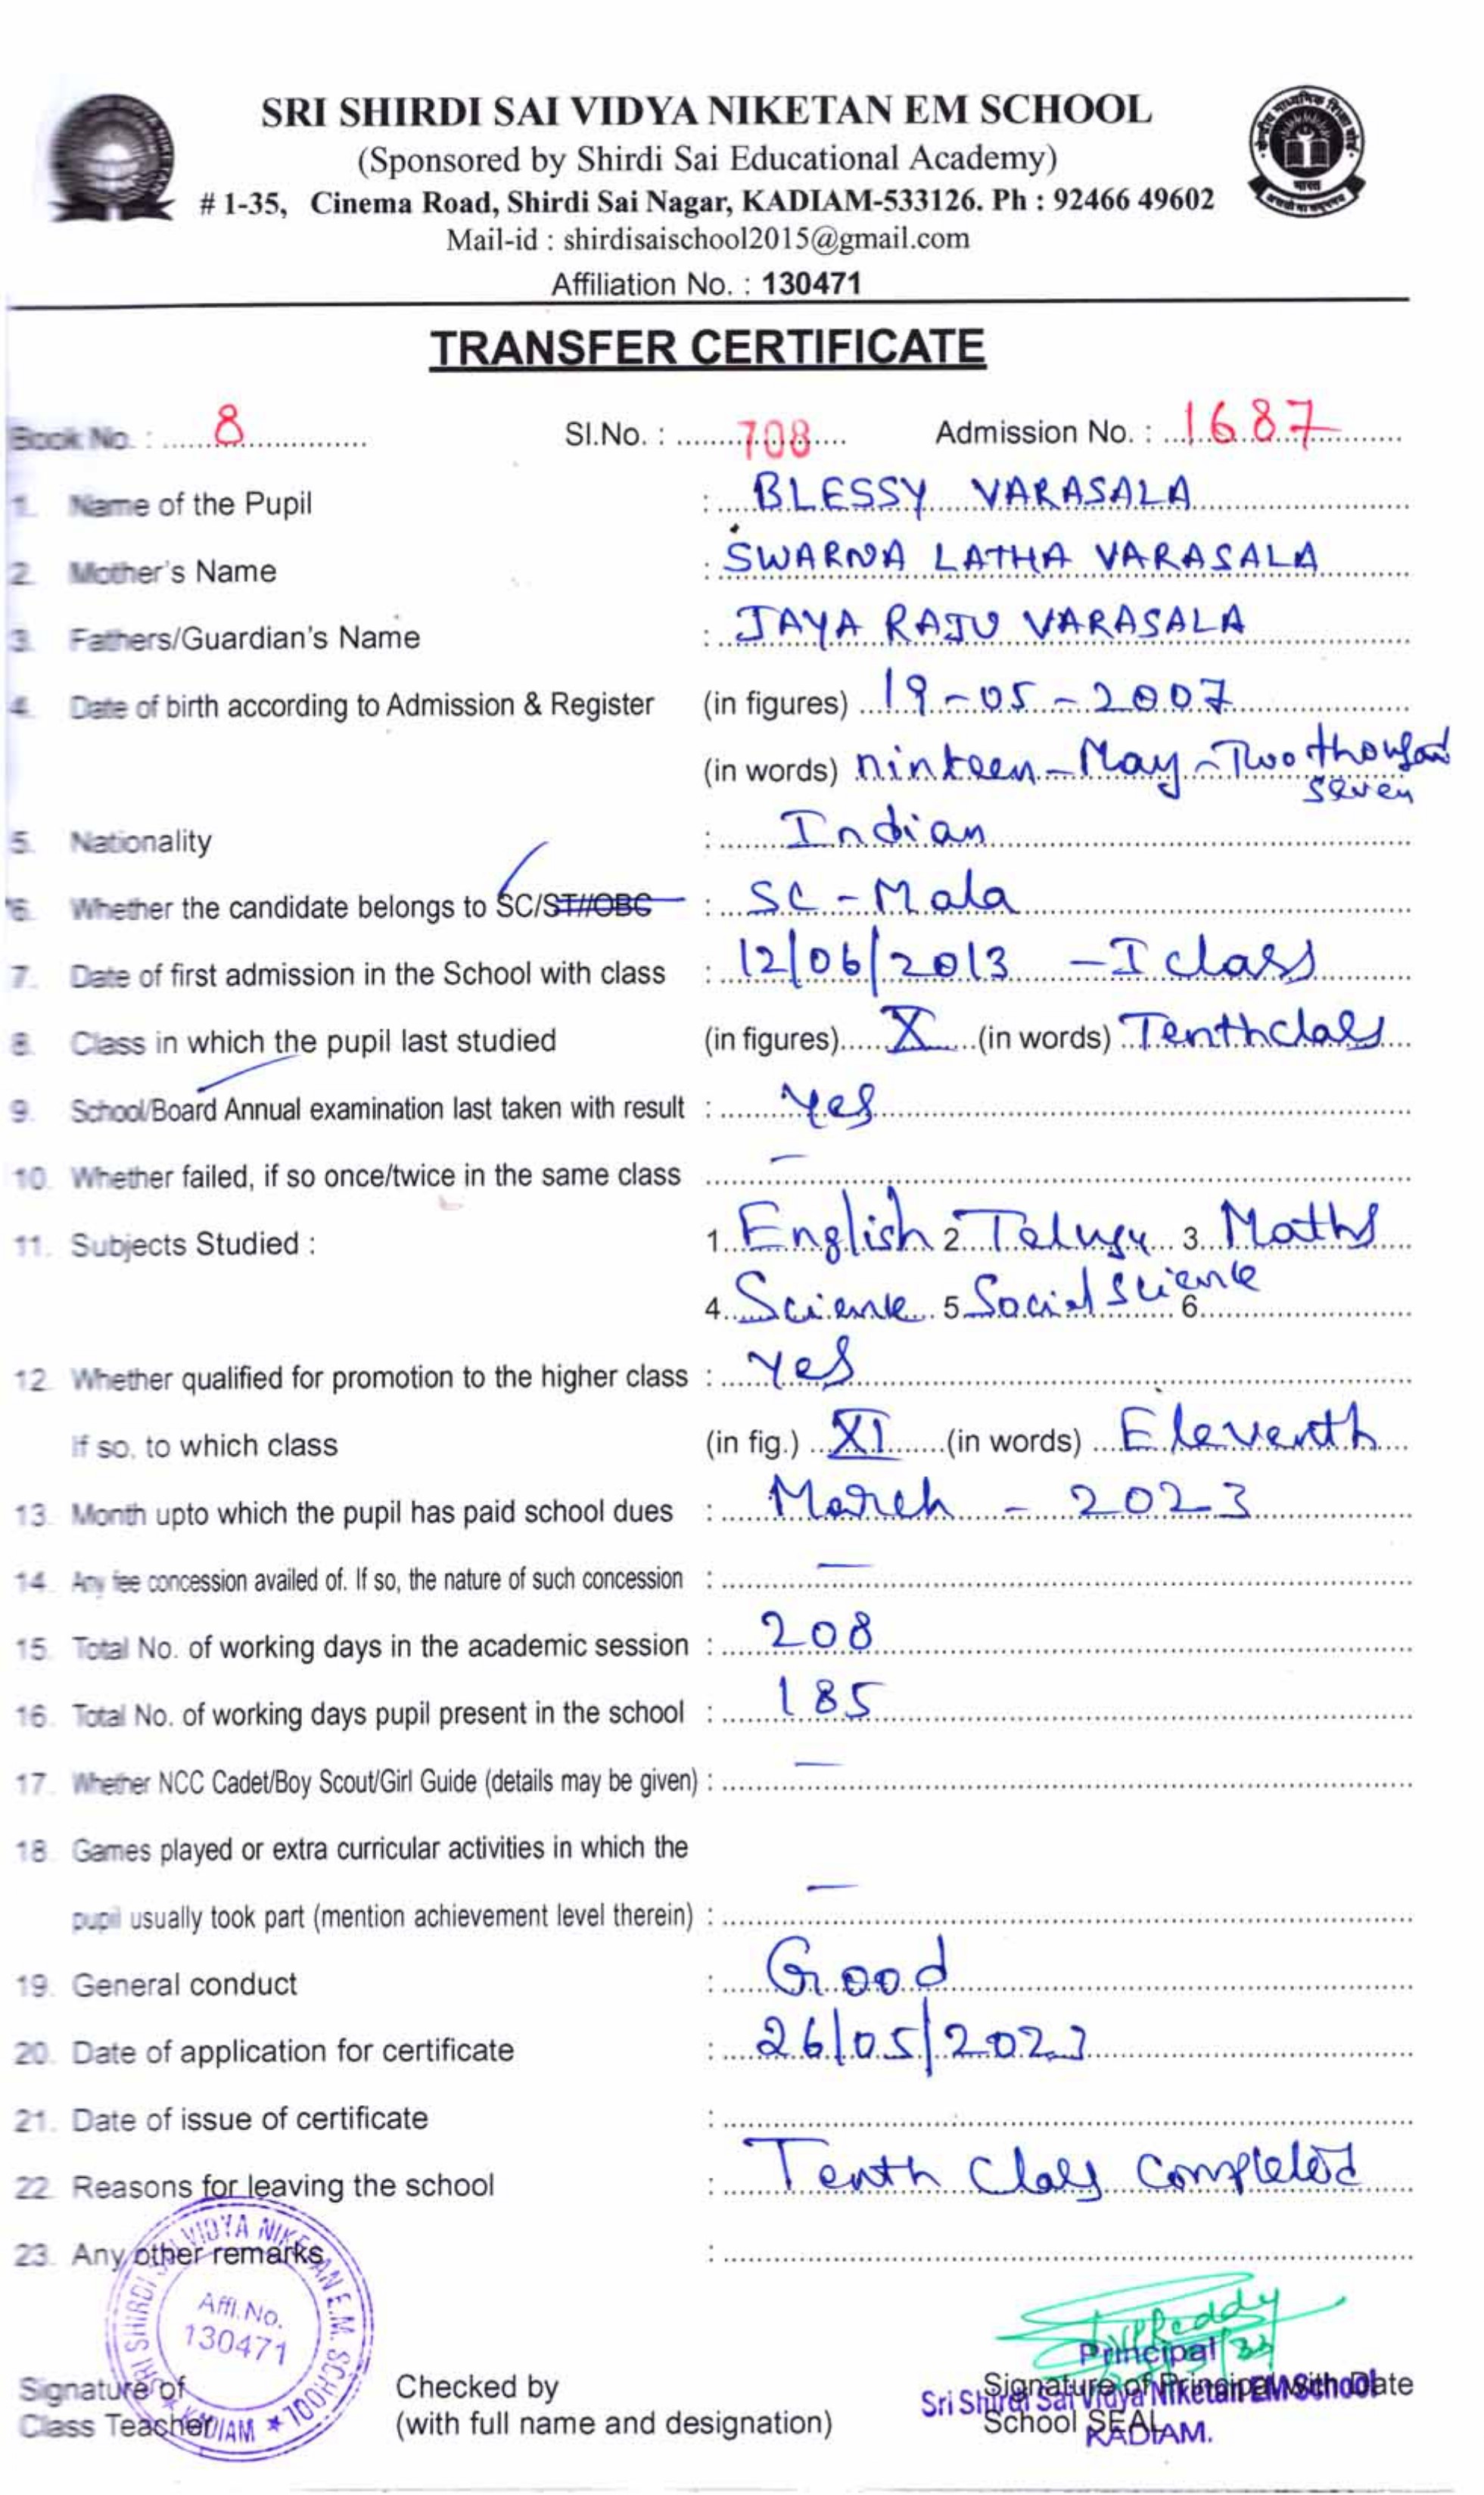 SRI SHIRDI SAI VIDYA NIKETAN EM SCHOOL
(Sponsored by Shirdi Sai Educational Academy)
# 1-35, Cinema Road, Shirdi Sai Nagar, KADIAM-533126. Ph : 92466 49602
Mail-id : shirdisaischool2015@gmail.com
Affiliation No. : 130471
TRANSFER CERTIFICATE
Book No. : 8 Sl.No. : 708 Admission No. : 1687
1. Name of the Pupil : BLESSY VARASALA
2. Mother's Name : SWARNA LATHA VARASALA
3. Fathers/Guardian's Name : JAYA RAJU VARASALA
4. Date of birth according to Admission & Register (in figures) 19-05-2007
(in words) ninteen-May-Two thousand
seven
5. Nationality : Indian
6. Whether the candidate belongs to SC/ST//OBC : SC-Mala
7. Date of first admission in the School with class : 12/06/2013 -I class
8. Class in which the pupil last studied (in figures) X (in words) Tenth class
9. School/Board Annual examination last taken with result : Yes
10. Whether failed, if so once/twice in the same class –
11. Subjects Studied : 1. English 2. Telugu 3. Maths
4. Science 5. Social Science 6.
12. Whether qualified for promotion to the higher class : Yes
If so, to which class (in fig.) XI (in words) Eleventh
13. Month upto which the pupil has paid school dues : March - 2023
14. Any fee concession availed of. If so, the nature of such concession : –
15. Total No. of working days in the academic session : 208
16. Total No. of working days pupil present in the school : 185
17. Whether NCC Cadet/Boy Scout/Girl Guide (details may be given) : –
18. Games played or extra curricular activities in which the
pupil usually took part (mention achievement level therein) : –
19. General conduct : Good
20. Date of application for certificate : 26/05/2023
21. Date of issue of certificate :
22. Reasons for leaving the school : Tenth Class Completed
23. Any other remarks :
SRI SHIRDI SAI VIDYA NIKETAN E.M. SCHOOL
Affl.No.
130471
★ KADIAM ★
Signature of
Class Teacher
Checked by
(with full name and designation)
Principal
Signature of Principal with Date
Sri Shirdi Sai Vidya Niketan EM School
School SEAL
KADIAM.